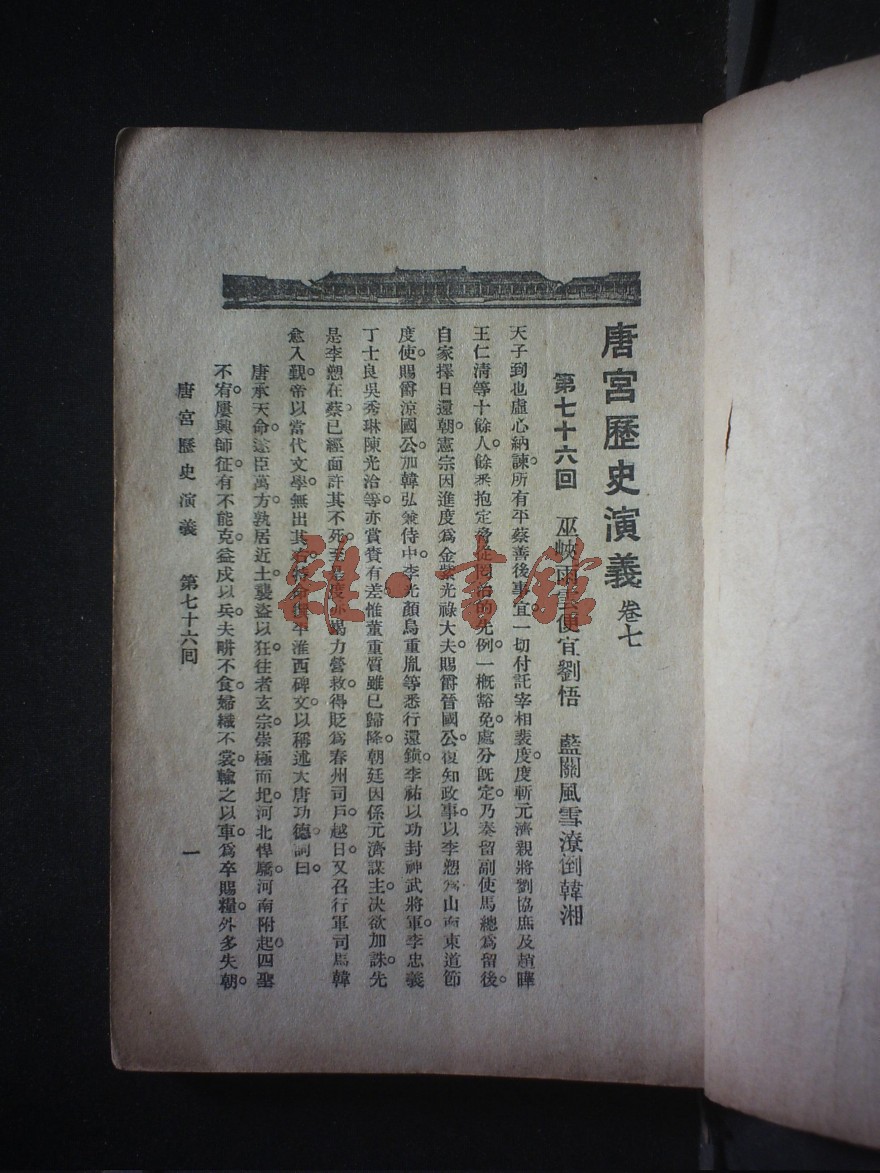 唐宮歷史演義 卷七
第七十六回 巫峽雨雲便宜劉悟 藍關風雪潦倒韓湘
天子到也虛心納諫。所有平蔡善後事宜。一切付託宰相裴度。度斬元濟。親將劉協庶及趙曄
王仁清等十餘人。餘悉抱定脅從罔治的先例。一概豁免。處分既定。乃奏留副使馬總爲留後。
自家擇日還朝。憲宗因進度爲金紫光祿大夫。賜爵晉國公。復知政事。以李愬爲山南東道節
度使。賜爵涼國公。加韓弘兼侍中。李光顏烏重胤等悉行還鎮。李祐以功封神武將軍。李忠義
丁士良吳秀琳陳光洽等。亦賞賚有差。惟董重質雖已歸降。朝廷因係元濟謀主。決欲加誅。先
是李愬在蔡。已經面許其不死。至是度亦竭力營救。得貶爲春州司戶。越日。又召行軍司馬韓
愈入覲。帝以當代文學。無出其右。特命撰平淮西碑文。以稱述大唐功德。詞曰。
唐承天命。遂臣萬方。孰居近土。襲盜以狂。往者玄宗。崇極而圮。河北悍驕。河南附起。四聖
不宥。屢興師征。有不能克。益戍以兵。夫畊不食。婦織不裳。輸之以車。爲卒賜糧。外多失朝。
唐宮歷史演義 第七十六回 一
雜·書館